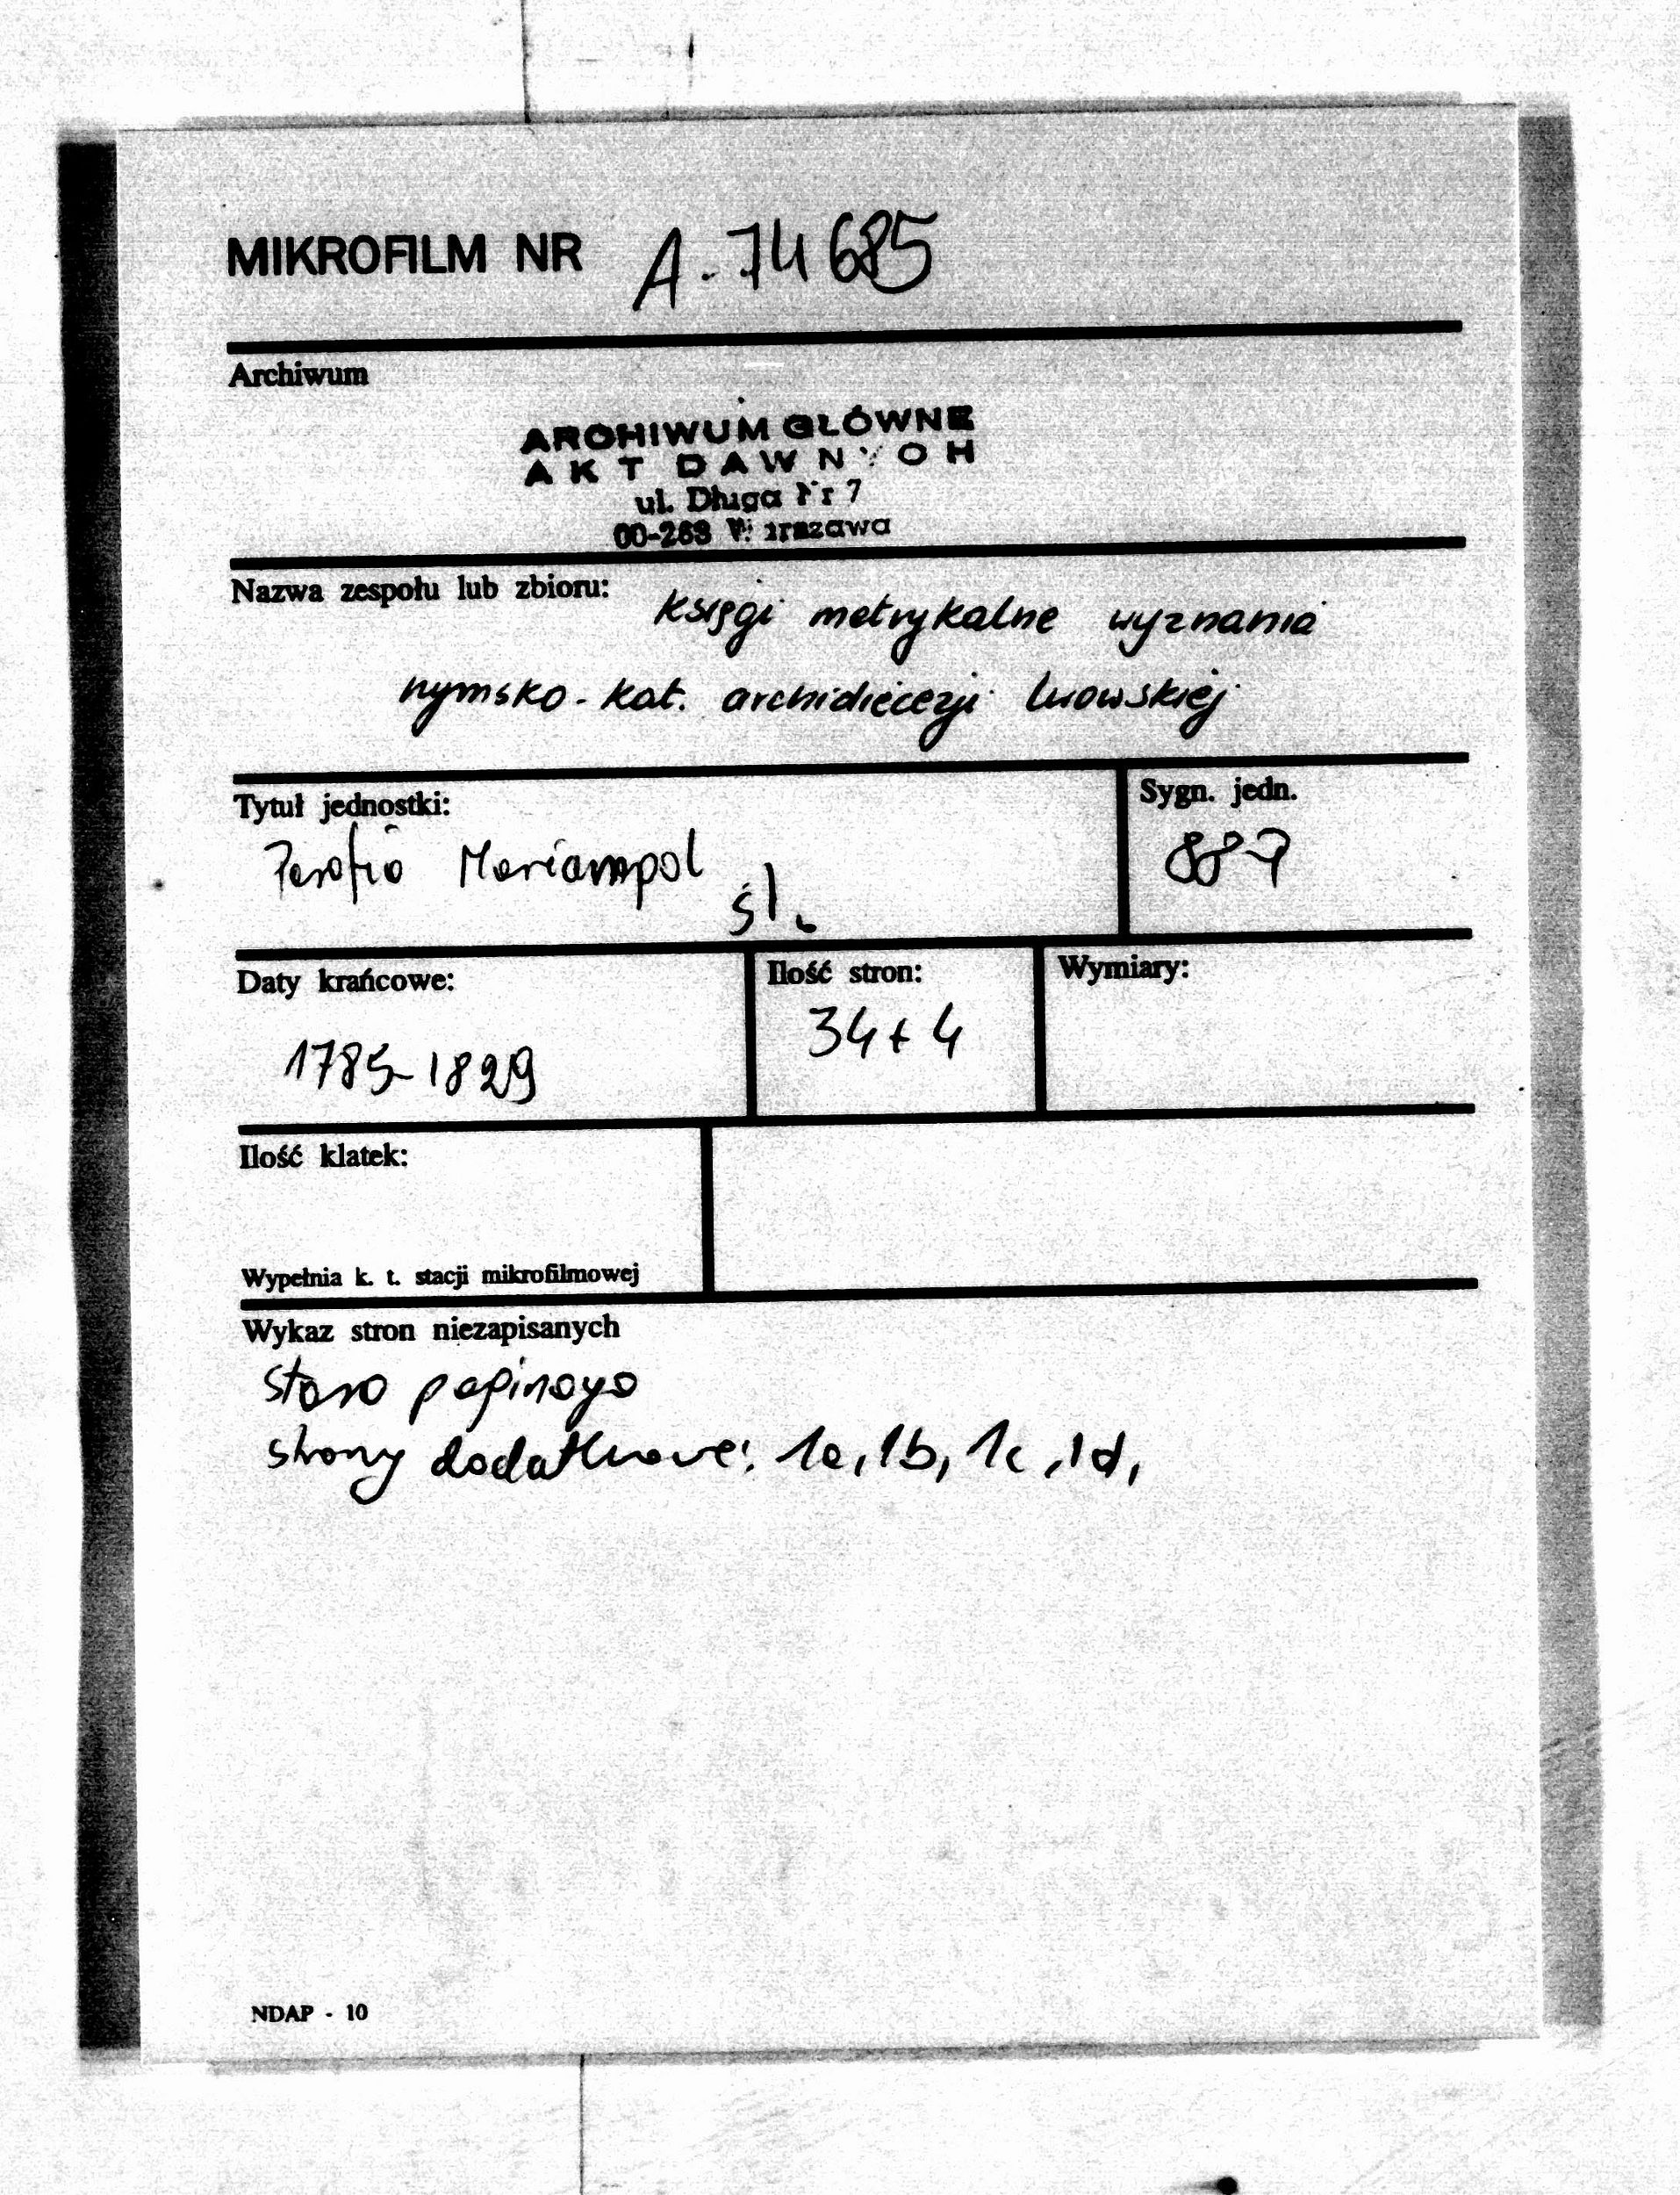 MIKROFILM NR A-74685
Archiwum
ARCHIWUM GŁÓWNE
AKT DAWNYCH
ul. Długa Nr 7
00-263 Warszawa
Nazwa zespołu lub zbioru: Księgi metrykalne wyznania
rymsko-kat. archidiecezji lwowskiej
Tytuł jednostki:
Sygn. jedn.
Parafia Mariampol
śl.
887
Daty krańcowe:
Ilość stron:
Wymiary:
1785-1829
34+4
Ilość klatek:
Wypełnia k. t. stacji mikrofilmowej
Wykaz stron niezapisanych
stara paginacja
strony dodatkowe: 1a, 1b, 1c, 1d,
NDAP - 10